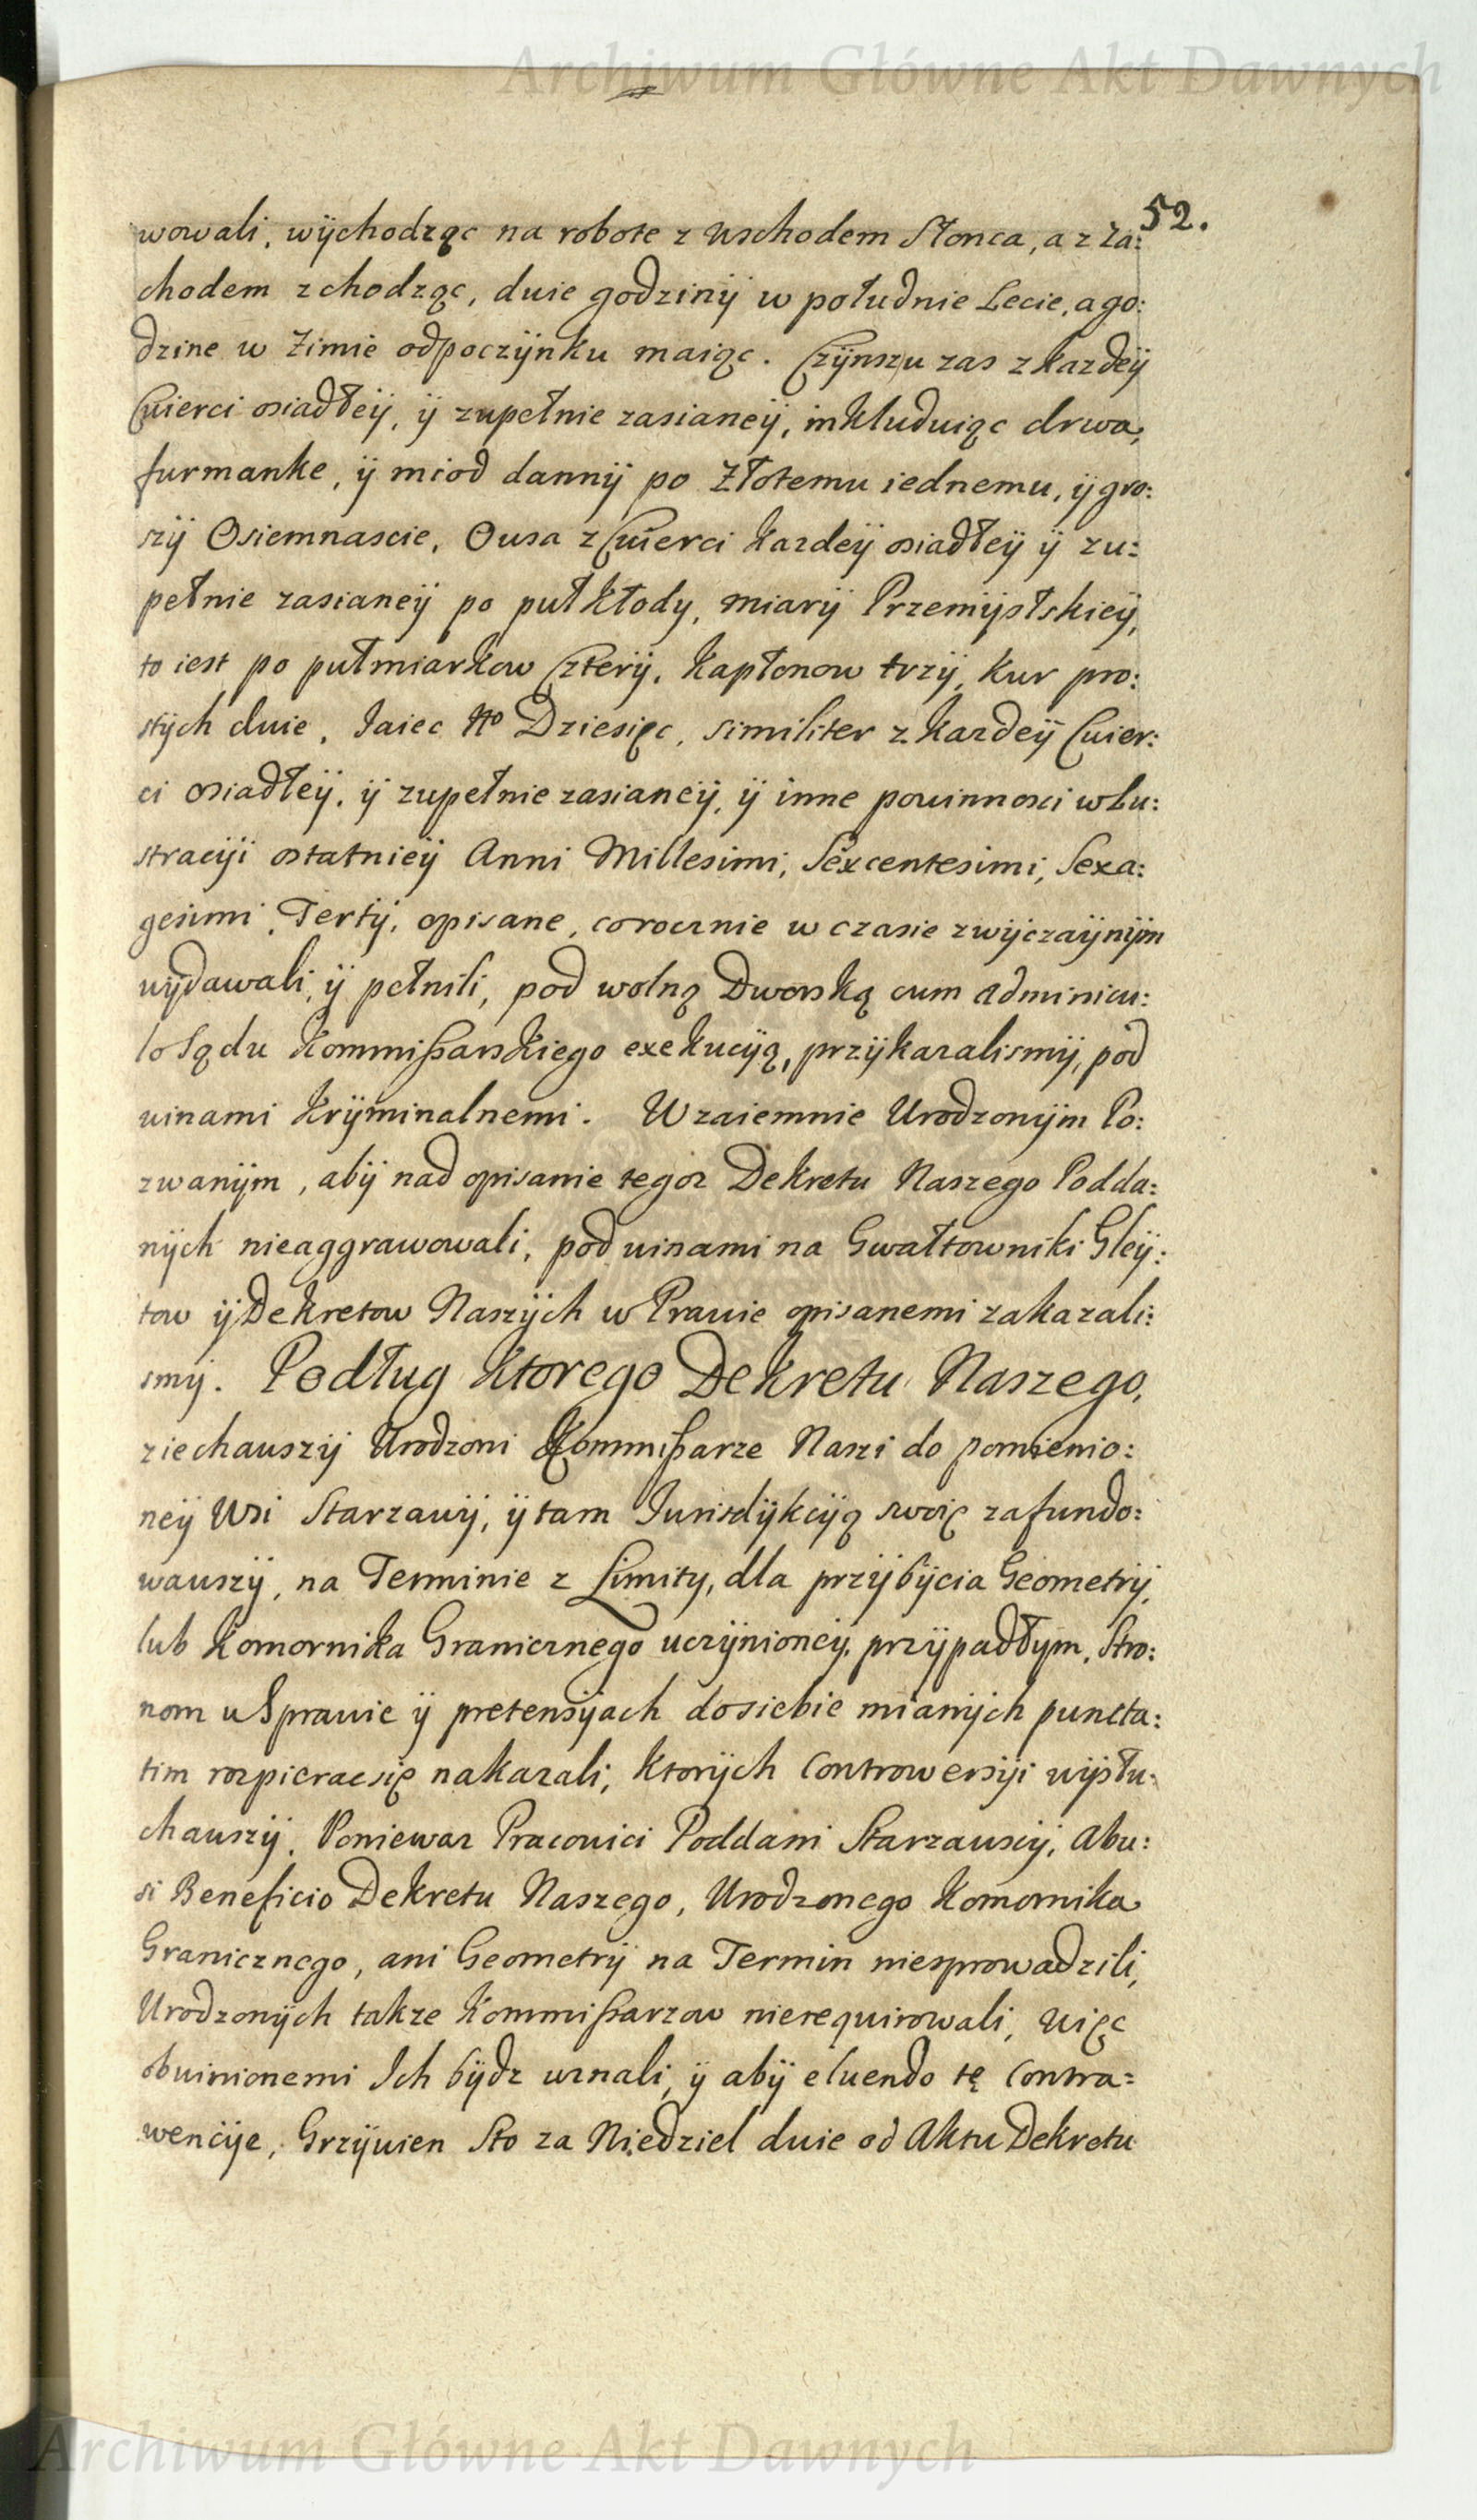 Archiwum Główne Akt Dawnych
52.
wowali, wÿchodząc na robote z wschodem Słonca, a z Za:
chodem zchodząc, dwie godzinÿ w południe Lecie, a go:
dzine w Zimie odpoczÿnku maiąc. Czÿnszu zas z kazdeÿ
Cwierci osiadłeÿ, ÿ zupełnie zasianeÿ, inkluduiąc drwa,
furmanke, ÿ miod dannÿ po Złotemu iednemu, ÿ gro:
szÿ Osiemnascie, Owsa z Cwierci kazdeÿ osiadłeÿ ÿ zu:
pełnie zasianeÿ po puł kłody, miarÿ Przemÿslskieÿ,
to iest po pułmiarkow Czterÿ, kapłonow trzÿ, kur pro:
stÿch dwie, Jaiec No Dziesięc, similiter z kazdeÿ Cwier:
ci osiadłeÿ, ÿ zupełnie zasianeÿ, ÿ inne powinnosci w Lu:
stracÿi ostatnieÿ Anni Millesimi, Sexcentesimi, Sexa:
gesimi, Tertÿ, opisane, corocznie w czasie zwÿczaÿnÿm
wÿdawali, ÿ pełnili, pod wolną Dworską cum adminicu:
lo Sądu Kommissarskiego exekucÿą, przÿkazalismÿ, pod
winami krÿminalnemi. Wzaiemnie Urodzonÿm Po:
zwanÿm, abÿ nad opisanie tegoz Dekretu Naszego Podda:
nÿch nieaggrawowali, pod winami na Gwałtowniki Gleÿ:
tow ÿ Dekretow Naszÿch w Prawie opisanemi zakazali:
smÿ. Podług ktorego Dekretu Naszego,
ziechawszÿ Urodzoni Kommissarze Naszi do pomienio:
neÿ Wsi Starzawÿ, ÿ tam Jurisdÿkcÿą swoię zafundo:
wawszÿ, na Terminie z Limity, dla przÿbÿcia Geometrÿ,
lub Komornika Granicznego uczÿnioneÿ, przÿpadłym, Stro:
nom w Sprawie ÿ pretensÿach do siebie mianÿch puncta:
tim rozpieracsię nakazali, ktorÿch Controwersÿi wÿsłu:
chawszÿ. Poniewaz Pracowici Poddani Starzawscÿ, abu:
si Beneficio Dekretu Naszego, Urodzonego Komornika
Granicznego, ani Geometrÿ na Termin niesprowadzili,
Urodzonÿch takze Kommissarzow nierequirowali, więc
obwinionemi Ich bÿdz uznali, ÿ abÿ eluendo tę Contra=
wencÿe, Grzÿwien Sto za Niedziel dwie od Aktu Dekretu
Archiwum Główne Akt Dawnych